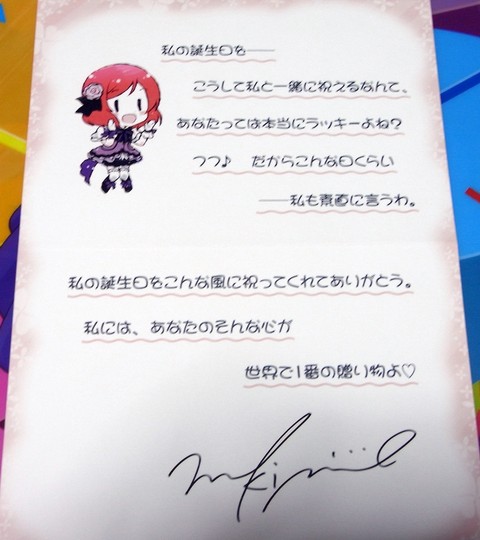 私の誕生日を――
こうして私と一緒に祝えるなんて、
あなたってば本当にラッキーよね?
つつ♪ だからこんな日くらい
――私も素直に言うわ。
私の誕生日をこんな風に祝ってくれてありがとう。
私には、あなたのそんな心が
世界で1番の贈り物よ♡